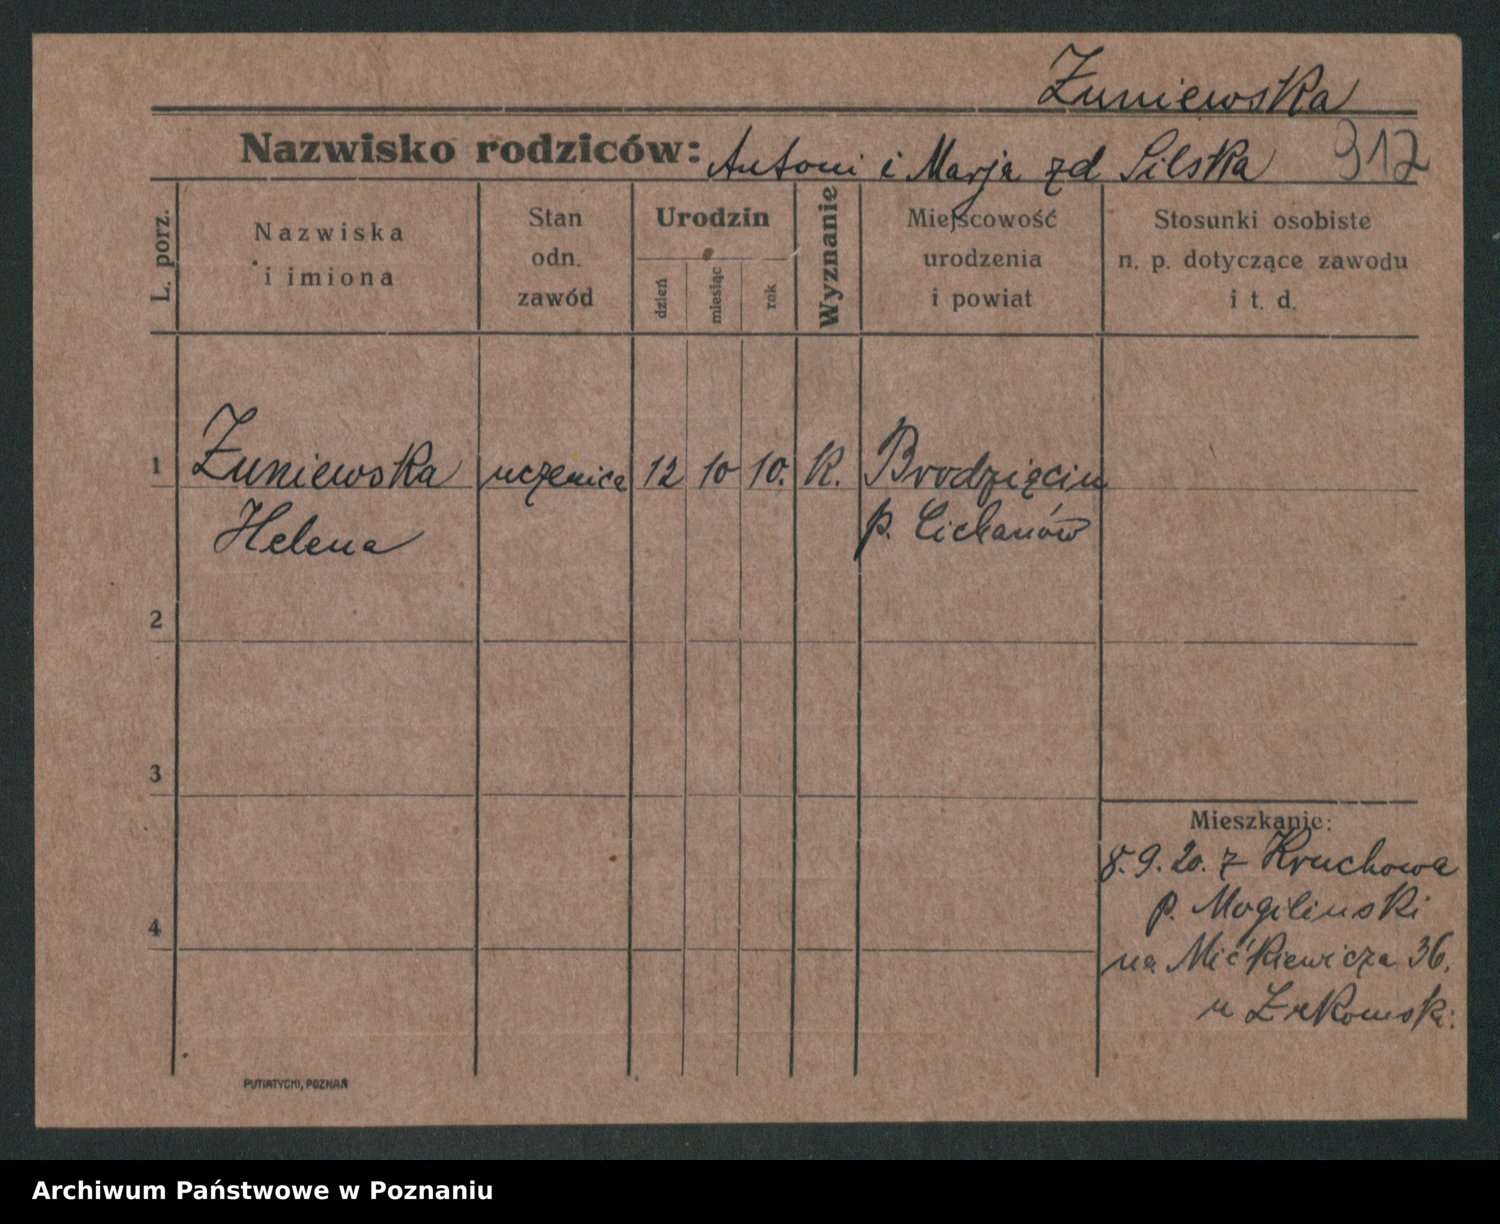 Żuniewska
Nazwisko rodziców: Antoni i Marja zd Silska 917
L. porz.
Nazwiska
i imiona
Stan
odn.
zawód
Urodzin
dzień
miesiąc
rok
Wyznanie
Miejscowość
urodzenia
i powiat
Stosunki osobiste
n. p. dotyczące zawodu
i t. d.
1 Żuniewska uczenica 12 10 10. K. Brodzięcin
Helena p. Ciehanów
2
3
4
Mieszkanie:
8.9.20. z Kruchowa
p. Mogilinski
na Mićkiewicza 36.
u
PUTIATYCKI, POZNAŃ
Archiwum Państwowe w Poznaniu